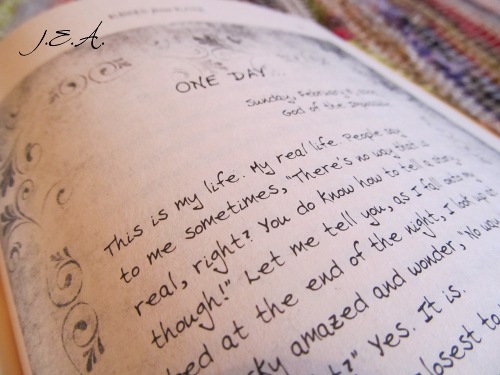 J.E.A.
ONE DAY...
Sunday, February
God of the
This is my life. My real life. People say
to me sometimes, "There's no way that is
real, right? You do know how to tell a story
though!" Let me tell you, as I fall onto my
bed at the end of the night, I look up at
sky amazed and wonder, "No way
?" Yes. It is.
closest to